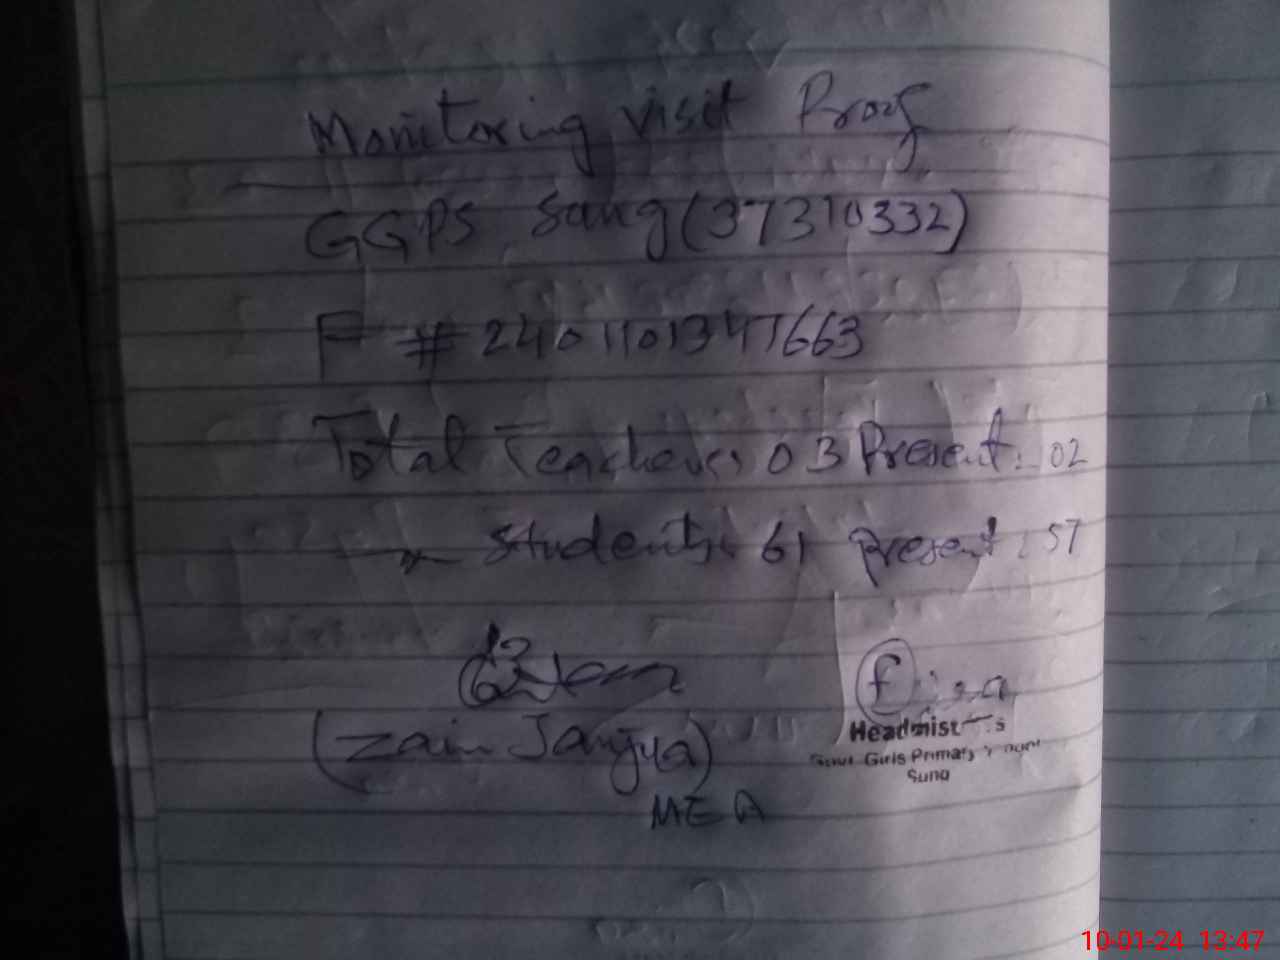 Monitoring visit Proof
GGPS Sang (37310332)
F # 2401101347663
Total Teachers: 03 Present: 02
Students: 61 Present: 57
(Zain Janjua)
MEA
Headmist s
Govt Girls Primary
Sung
10-01-24 13:47